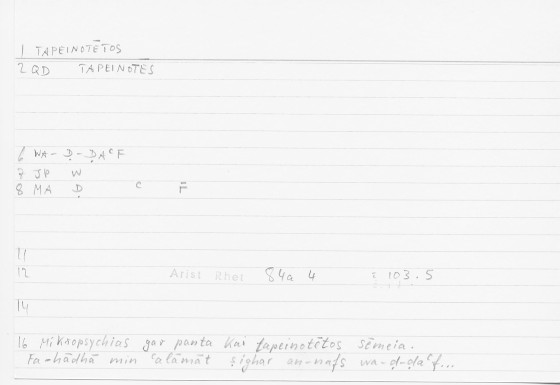 1 TAPEINOTĒTOS
2 QD TAPEINOTĒS
6 WA-Ḍ-ḌAᶜF
7 JP W
8 MA Ḍ ᶜ F̄
11
12 Arist Rhet 84a 4 : 103.5
14
16 Mikropsychias gar panta kai tapeinotētos sēmeia.
Fa-hādhā min ᶜalāmāt ṣighar an-nafs wa-ḍ-ḍaᶜf...